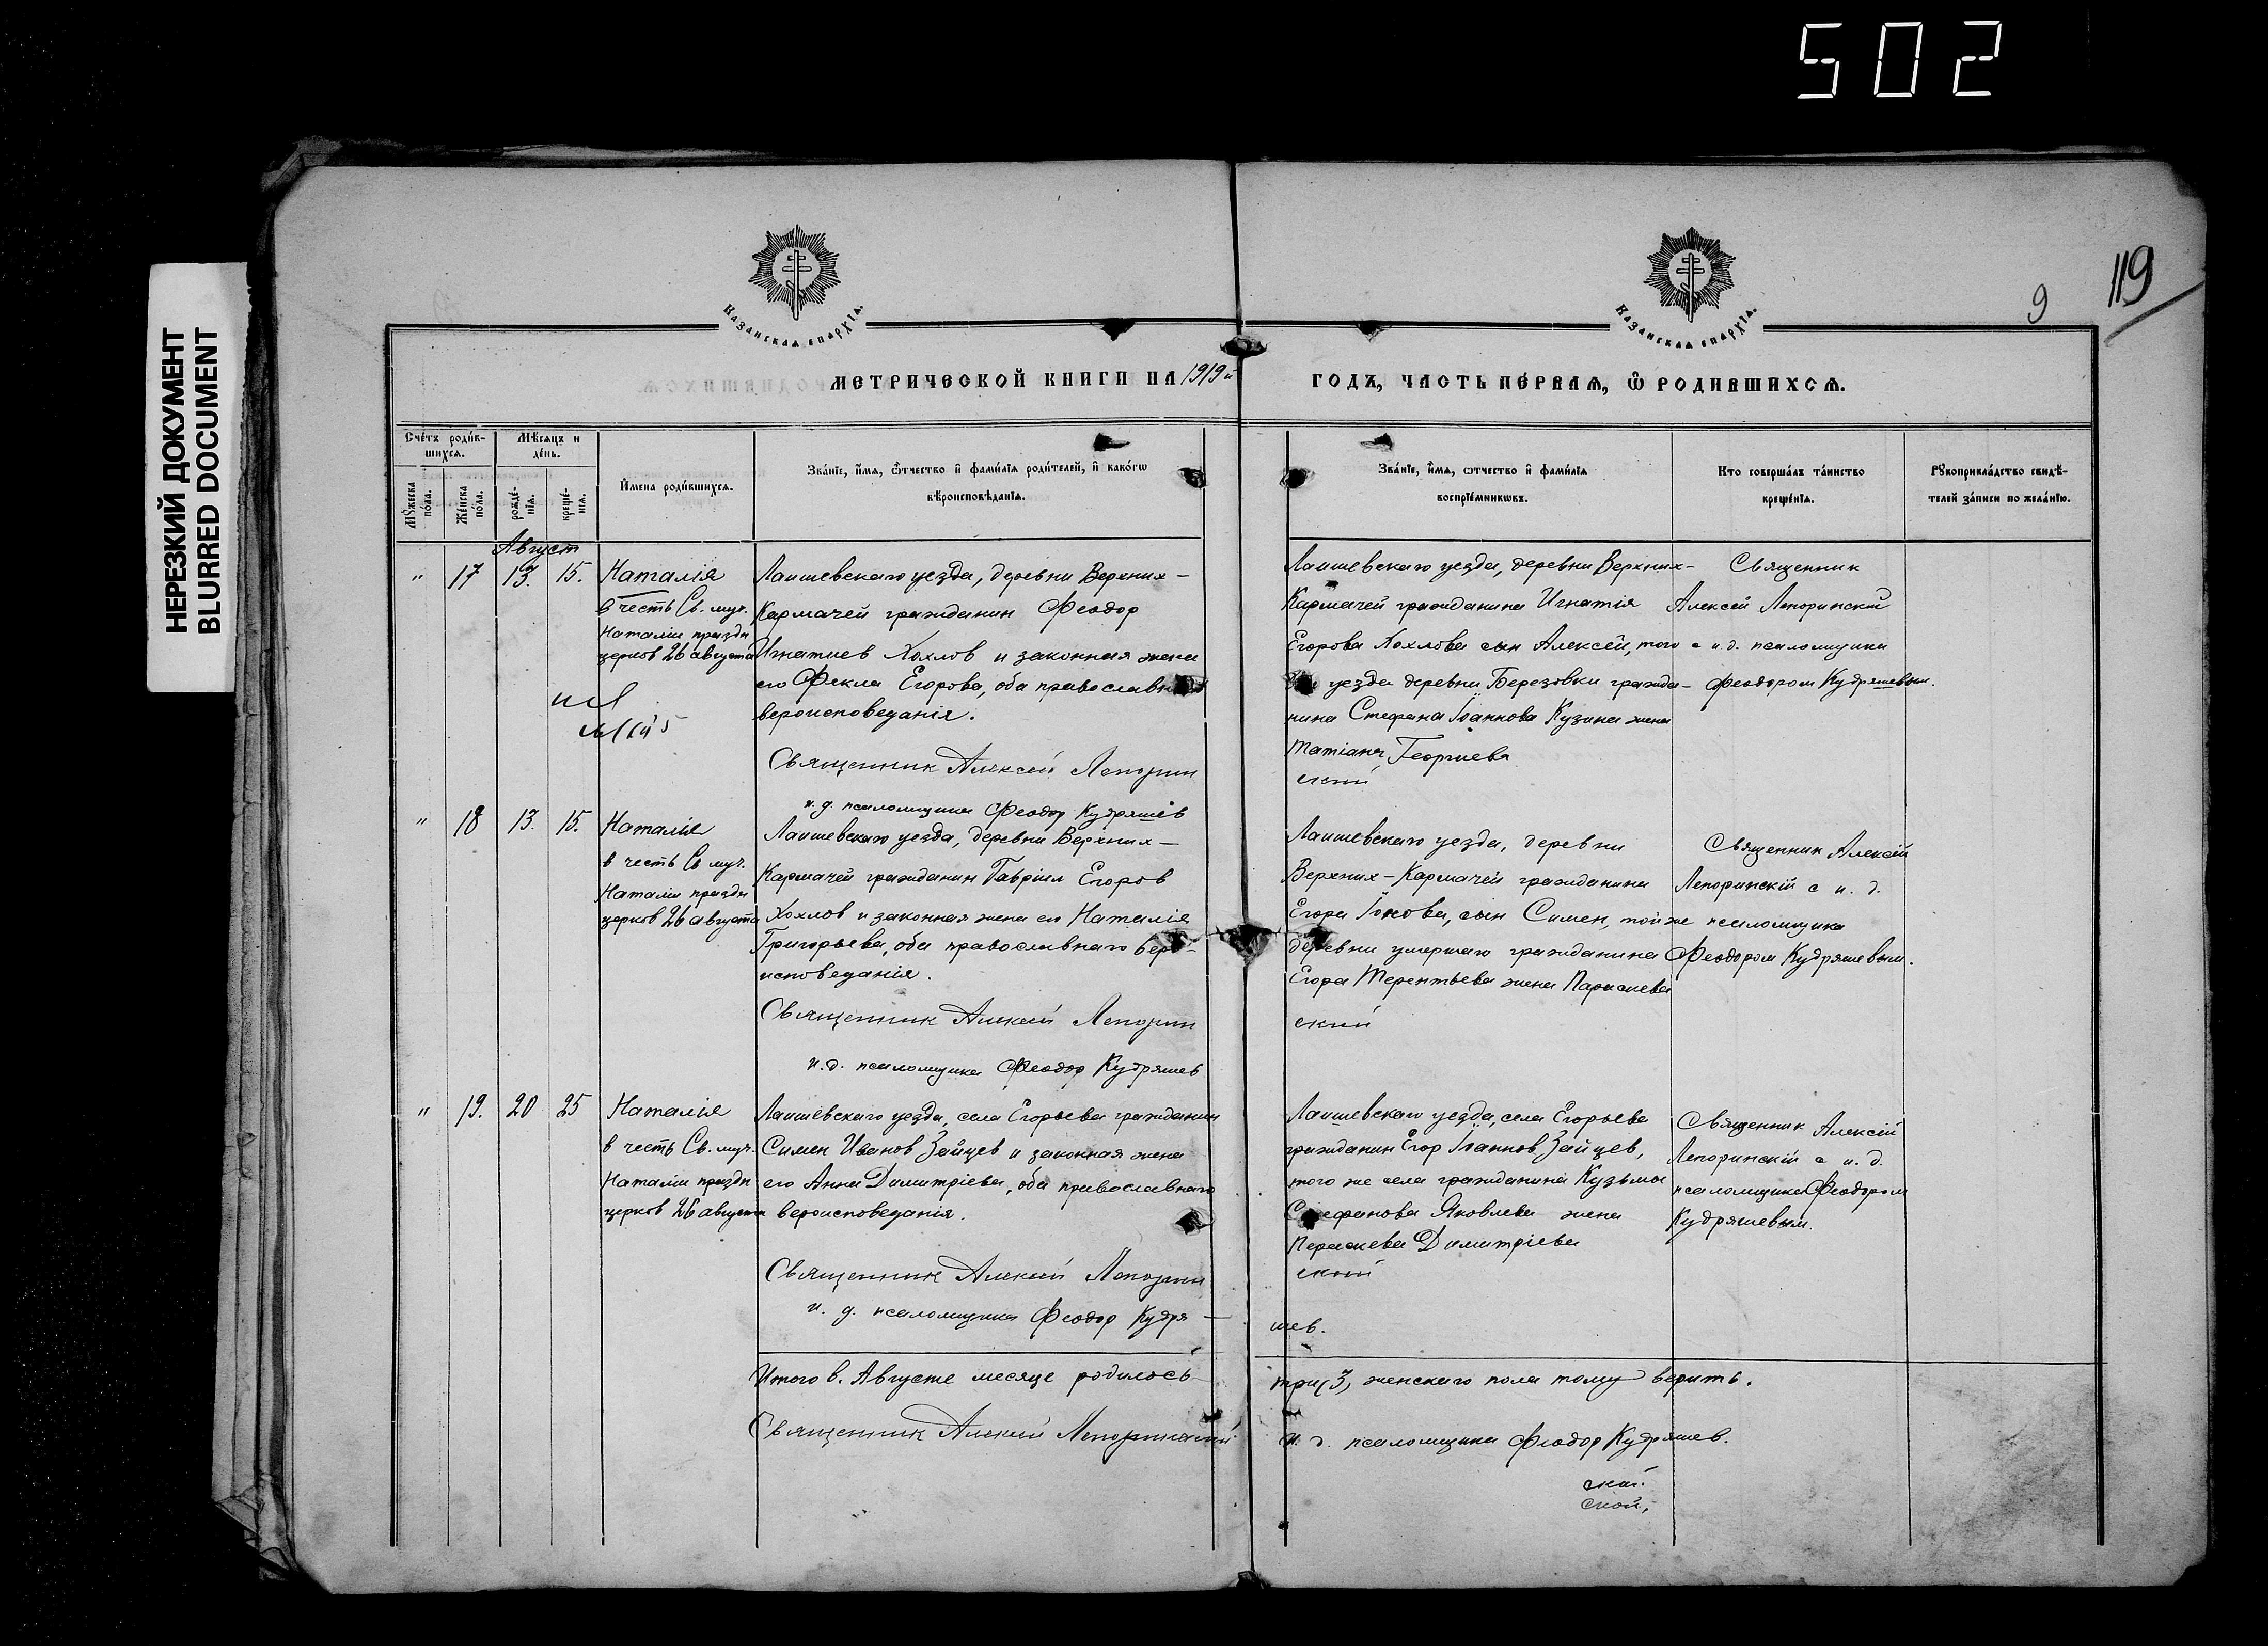 502
НЕРЕЗКИЙ ДОКУМЕНТ
BLURRED DOCUMENT
Казанская епархїа.
Казанская епархїа.
9
119
МЕТРИЧЕСКОЙ КНИГИ НА 1919й
ГОДЪ, ЧАСТЬ ПЕ́РВАѦ, Ѡ РОДИВШИХСѦ.
Сче́тъ роди́в-
шихсѧ.
Мѣ́сяцъ и
де́нь.
Мꙋ́жеска
по́ла.
Же́нска
по́ла.
рожде́-
нїѧ.
креще́-
нїѧ.
И҆мена роди́вшихсѧ.
Зва́нїе, и҆́мѧ, ѻ҆́тчество и҆ фами́лїѧ роди́телей, и҆ како́гѡ
вѣроисповѣ́данїѧ.
Зва́нїе, и҆́мѧ, ѻ҆́тчество и҆ фами́лїѧ
воспрїе́мникѡвъ.
Кто соверша́лъ та́инство
креще́нїѧ.
Рꙋкоприкла́дство свидѣ́-
телей за́писи по жела́нїю.
Август
" 17 13. 15. Наталія
в честь Св. муч.
Наталии праздн
церков 26 августа
Лаишевскаго уезда, деревни Верхних –
Кармачей гражданин Феодор
Игнатиев Хохлов и законная жена
его Фекла Егорова, оба православнаго
вероисповеданія.
Священник Алексей Лепорин
и. д. псаломщика Феодор Кудряшев
Лаишевскаго уезда, деревни Верхних –
Кармачей гражданина Игнатія
Егорова Хохлова сын Алексей, того
же уезда деревни Березовки гражда–
нина Стефана Іоаннова Кузина жена
Татіана Георгиева
ский
Священник
Алексей Лепоринскій
с и. д. псаломщика
Феодором Кудряшевым.
" 18 13. 15. Наталія
в честь Св муч.
Наталии праздн
церков 26 августа
Лаишевскаго уезда, деревни Верхних –
Кармачей гражданин Гавріил Егоров
Хохлов и законная жена его Наталія
Григорьева, оба православнаго веро–
исповеданія.
Священник Алексей Лепорин
и. д. псаломщика Феодор Кудряшев
Лаишевскаго уезда, деревни
Верхних – Кармачей гражданина
Егора Іонова, сын Симен, той же
деревни умершаго гражданина
Егора Терентьева жена Параскева
ский
Священник Алексей
Лепоринскій с и. д.
псаломщика
Феодором Кудряшевым.
" 19. 20 25 Наталія
в честь Св. муч.
Наталии праздн
церков 26 августа
Лаишевскаго уезда, села Егорьева гражданин
Симен Иванов Зайцев и законная жена
его Анна Димитріева, оба православнаго
вероисповеданія.
Священник Алексей Лепорин
и. д. псаломщика Феодор Кудря –
Лаишевскаго уезда, села Егорьева
гражданин Егор Іоаннов Зайцев,
того же села гражданина Кузьмы
Стефанова Яковлева жена
Параскева Димитріева
ский
шев.
Священник Алексій
Лепоринскій с и. д.
псаломщика Феодором
Кудряшевым.
Итого в. Августе месяце родилось
три (3) женскаго пола тому верить.
Священник Алексей Лепоринский
и. д. псаломщика Феодор Кудряшев.
ской.
ской,